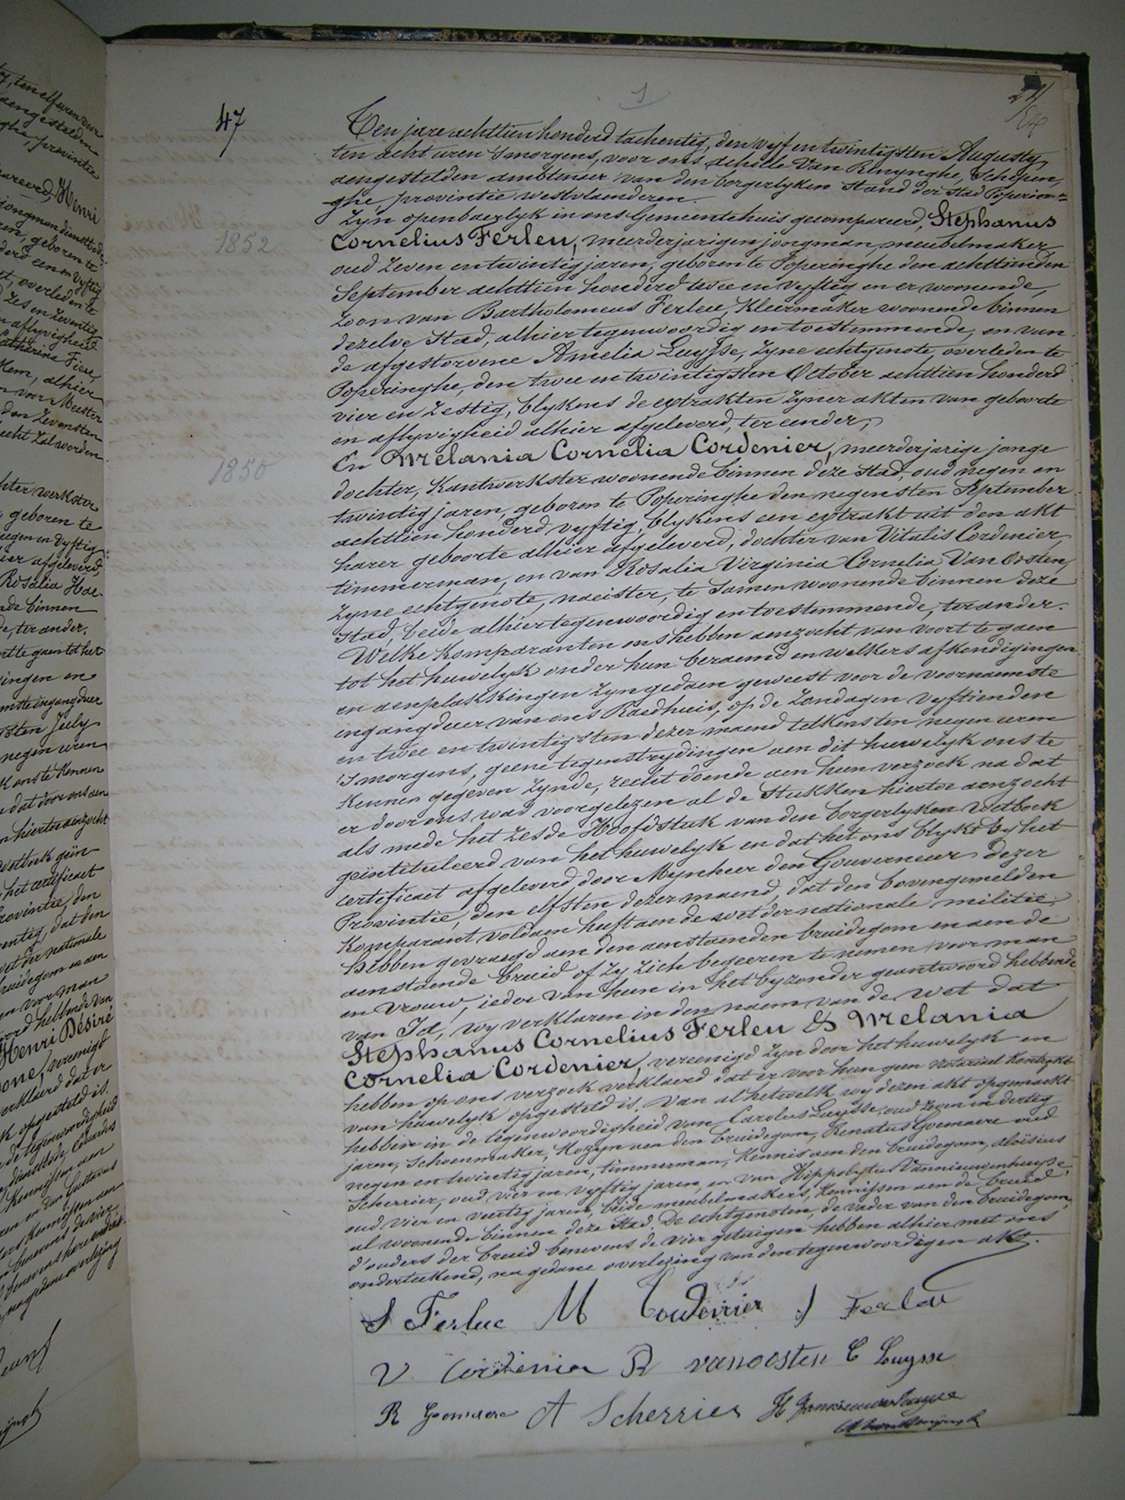 47
Ten jare achttien honderd tachentig, den vyf en twintigsten Augusty,
ten acht uren 's morgens, voor ons Achille Van Renynghe, Schepen,
aengestelden ambtenaer van den borgerlyken Stand der Stad Poperin=
ghe provintie Westvlaenderen.
Zyn openbaerlyk in ons Gemeentehuis gecompareerd, Stephanus
1852
Cornelius Ferleu, meerderjarigen jongman, meubelmaker,
oud zeven en twintig jaren, geboren te Poperinghe den achttienden
September achttien honderd twee en vyftig en er woonende,
zoon van Bartholomeus Ferleu, Kleermaker woonende binnen
dezelve Stad, alhier tegenwoordig en toestemmende, en van
de afgestorvene Amelia Luysse, zyne echtgenote, overleden te
Poperinghe, den twee en twintigsten October achttien honderd
vier en zestig, blykens de extrakten zyner akten van geboorte
en aflyvigheid alhier afgeleverd, ter eender,
1850
En Melania Cornelia Cordenier, meerderjarige jonge
dochter, Kantwerkster woonende binnen deze Stad, oud negen en
twintig jaren, geboren te Poperinghe den negensten September
achttien honderd vyftig, blykens een extrakt uit den akt
harer geboorte alhier afgeleverd, dochter van Vitalis Cordenier,
timmerman, en van Rosalia Virginia Cornelia Van Oosten,
zyne echtgenote, naeister, te samen woonende binnen deze
Stad, beide alhier tegenwoordig en toestemmende, ter ander.
Welke Komparanten ons hebben aenzocht van voort te gaen
tot het huwelyk onder hun beraemd en welkers afkondigingen
en aenplakkingen zyn gedaen geweest voor de voornaemste
ingangdeur van ons Raedhuis, op de Zondagen vyftienden
en twee en twintigsten dezer maend telkensten negen uren
's morgens, geene tegenstrydingen aen dit huwelyk ons te
Kennen gegeven zynde, recht doende aen hun verzoek na dat
er door ons was voorgelezen al de Stukken hiertoe aenzocht
als mede het zesde Hoofdstuk van den borgerlyken Wetboek
geintituleerd van het huwelyk en dat het ons blykt by het
certificaet afgeleverd door Mynheer den Gouverneur dezer
Provintie, den elfsten dezer maend, dat den bovengemelden
Komparant voldaen heeft aen de wet der nationale militie.
Hebben gevraegd aen den aenstaenden bruidegom en aen de
aenstaende bruid of zy zich begeeren te nemen voor man
en vrouw, ieder van hun in het byzonder geantwoord hebbende
van Ja, wy verklaren in den naem van de wet dat
Stephanus Cornelius Ferleu & Melania
Cornelia Cordenier, vereenigd zyn door het huwelyk en
hebben op ons verzoek verklaerd dat er voor hun geen notariael Kontrakt
van huwelyk opgesteld is. Van al hetwelk wy dezen akt opgemaekt
hebben in de tegenwoordigheid van Carolus Luysse, oud zeven en dertig
jaren, Schoenmaker, Kozyn aen den bruidegom, Renatus Goemaere oud
negen en twintig jaren, timmerman, Kennis aen den bruidegom, Aloisius
Scherrier, oud vier en vyftig jaren, en van Hippolytus Vannieuwenhuyse,
oud vier en veertig jaren, beide meubelmakers, Kennissen aen de bruid
al woonende binnen deze Stad. De echtgenoten, de vader van den bruidegom,
d'ouders der bruid benevens de vier getuigen hebben alhier met ons
onderteekend, na gedane overlezing van den tegenwoordigen akt.
S Ferleu M Cordenier J Ferleu
V Cordenier R vanoosten C Luysse
R Goemaere A Scherrier H Vannieuwenhuyse